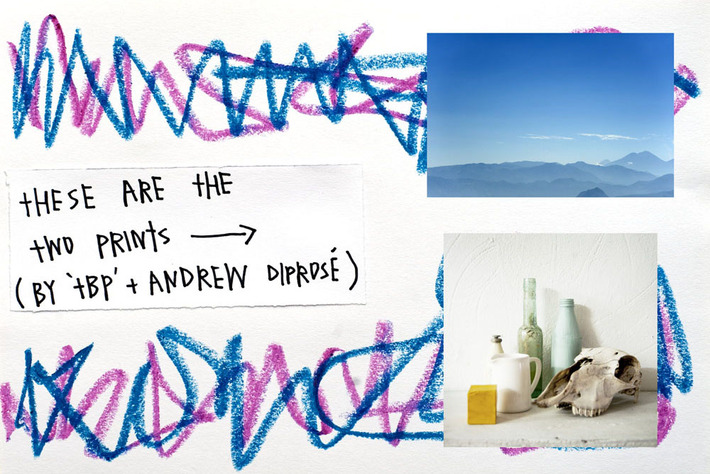 tHESE ARE tHE
tWO PRINtS ⟶
(BY 'tBP' + ANDREW DIPROSÉ)